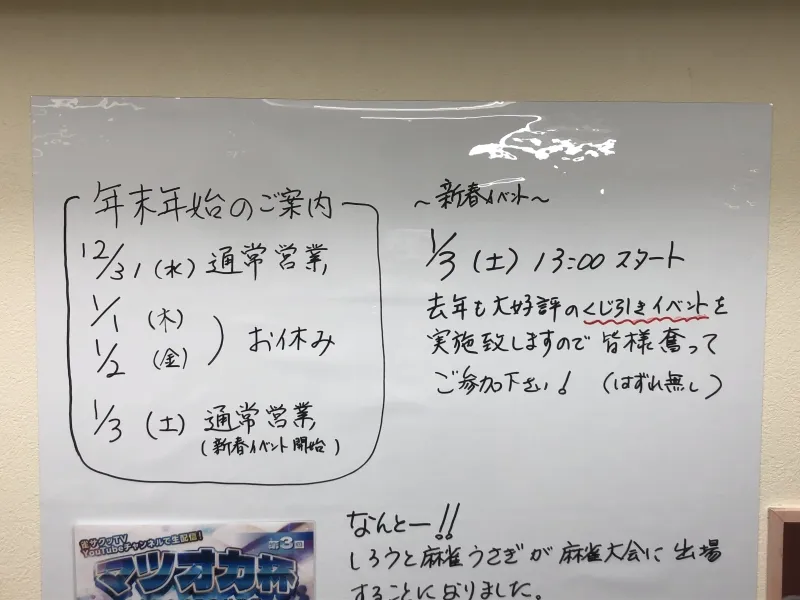 年末年始のご案内
12/31(水) 通常営業
1/1 (木)
1/2 (金)
) お休み
1/3 (土) 通常営業
(新春イベント開始)
～新春イベント～
1/3 (土) 13:00 スタート
去年も大好評のくじ引きイベントを
実施致しますので皆様奮って
ご参加下さい! (はずれ無し)
雀サクッTV
YouTubeチャンネルで生配信!
第3回
マツオカ杯
なんとー!!
しろうと麻雀うさぎが麻雀大会に出場
することになりました。